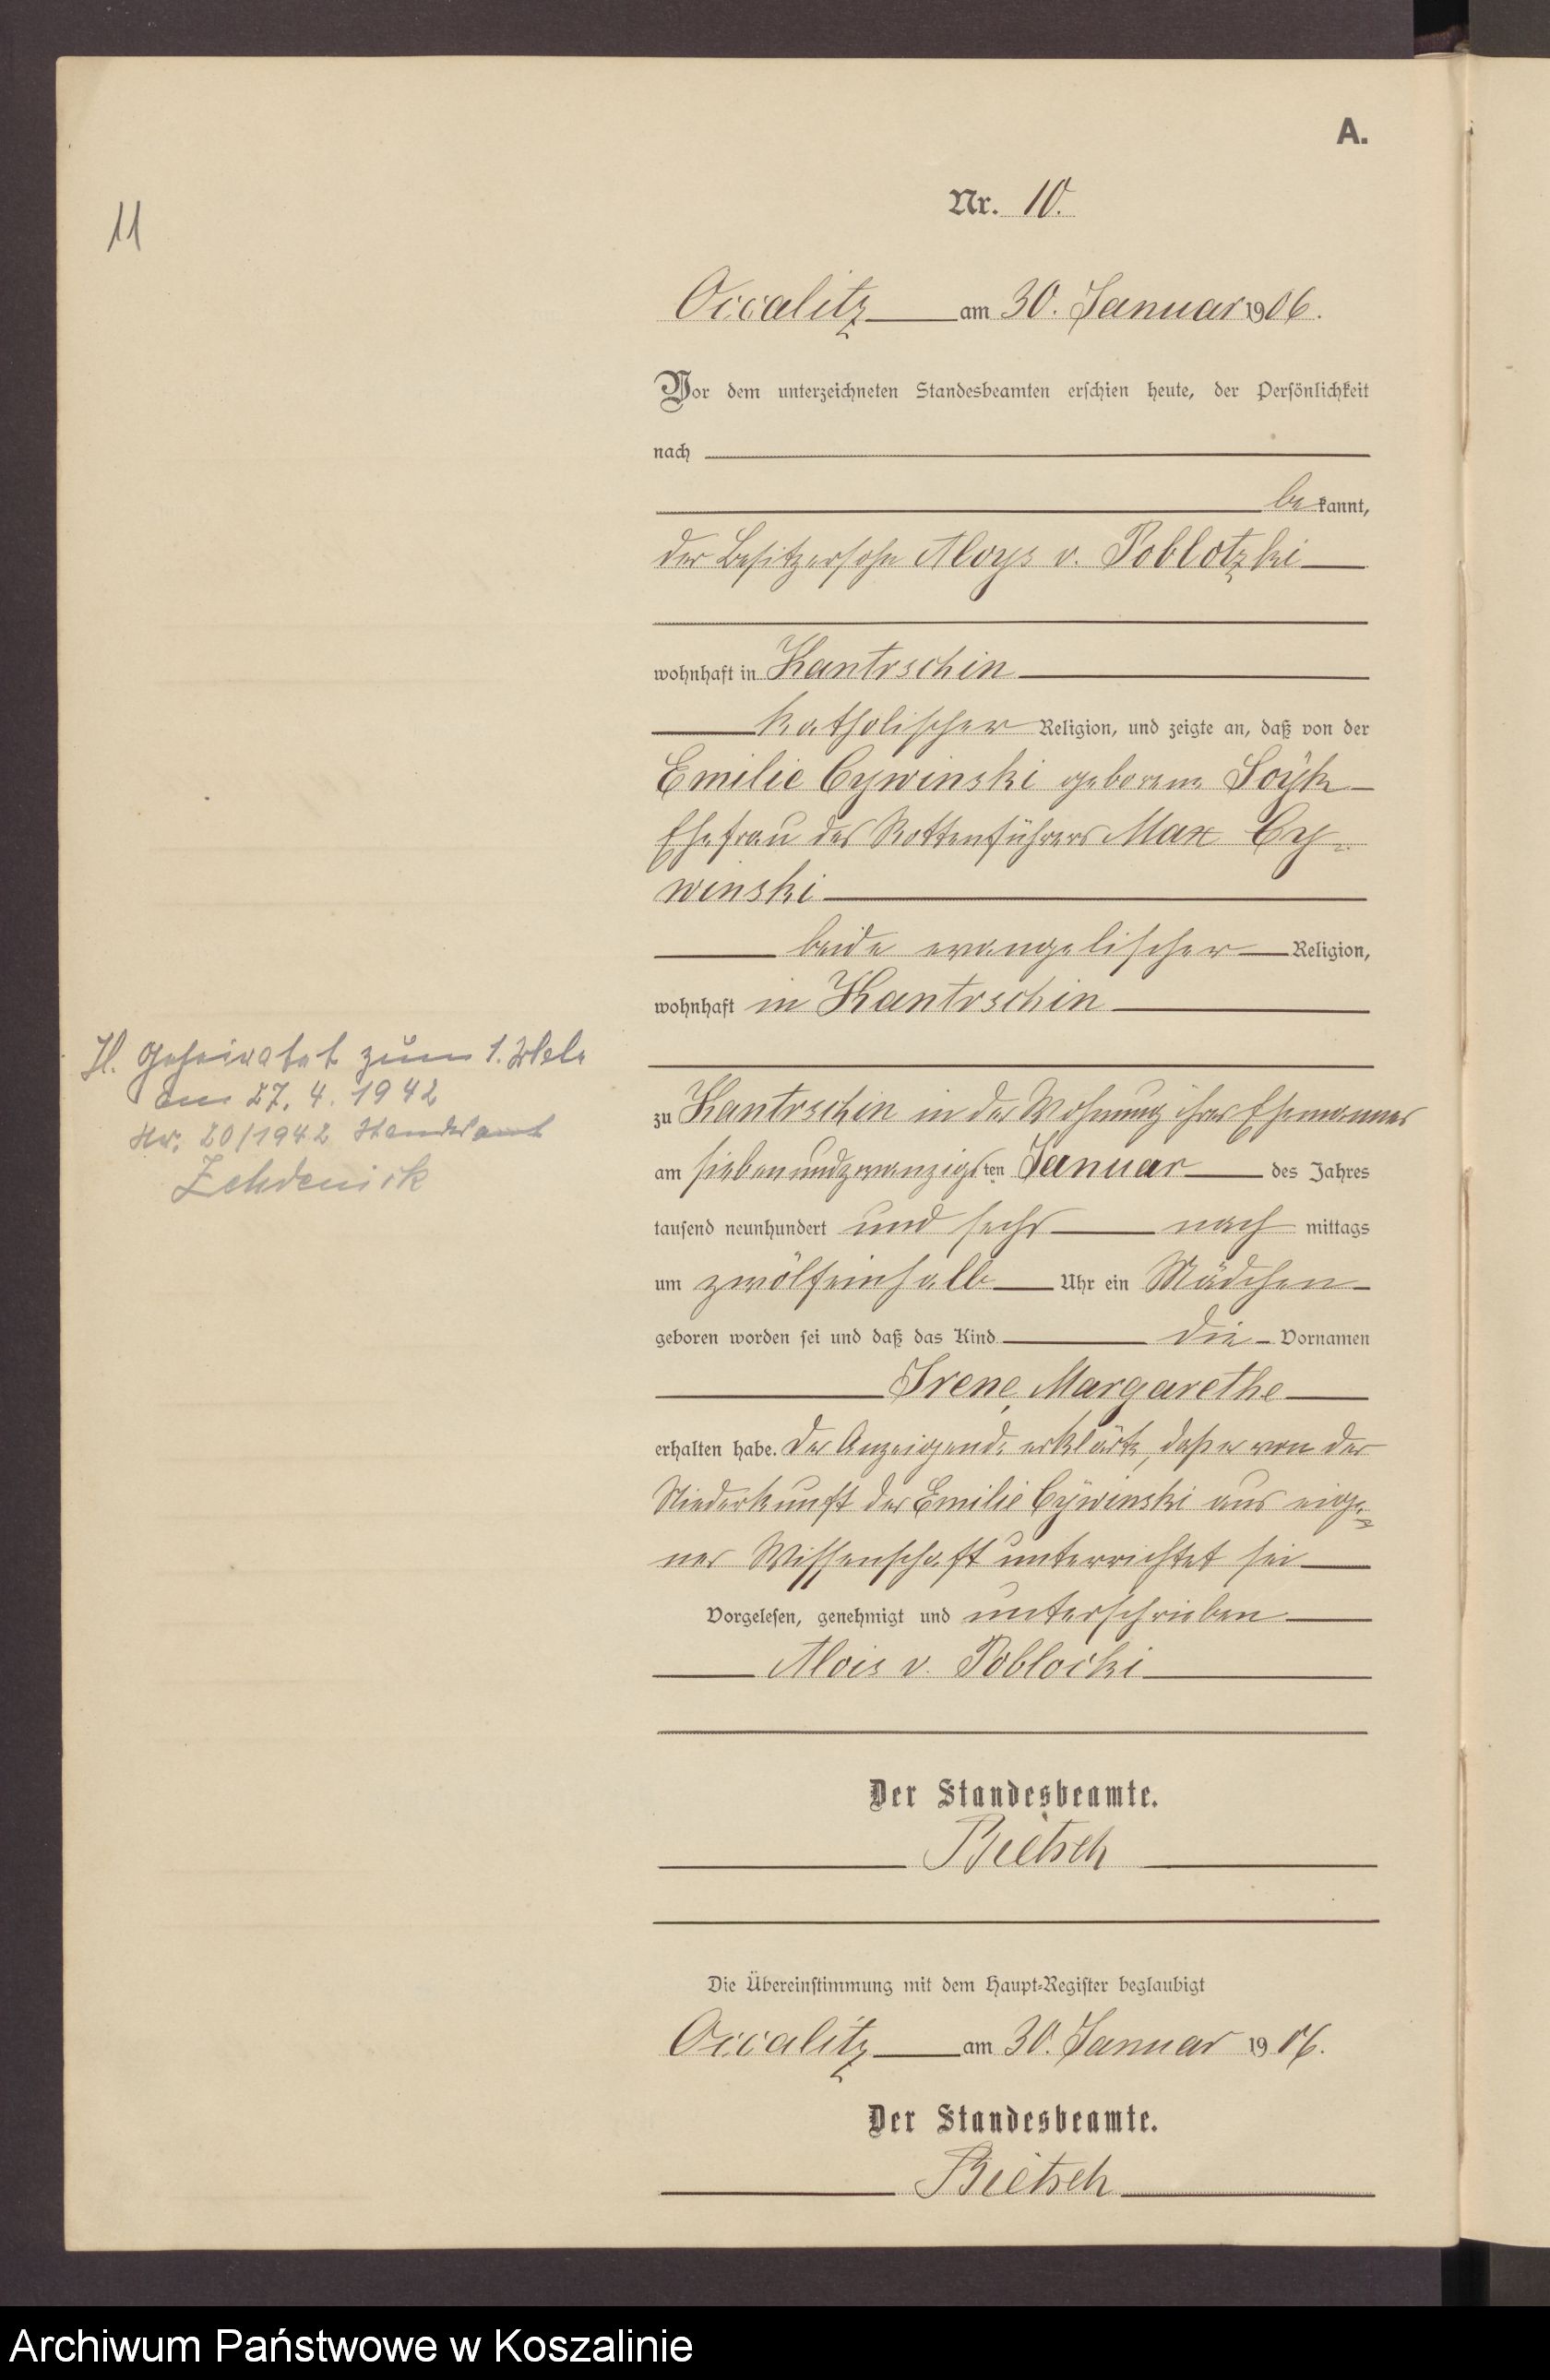 A.
11
Nr. 10.
Occalitz am 30. Januar 1906.
Vor dem unterzeichneten Standesbeamten erschien heute, der Persönlichkeit
nach
bekannt,
der Besitzersohn Aloys v. Poblotzki
wohnhaft in Kantrschin
katholischer Religion, und zeigte an, daß von der
Emilie Cywinski geborene Soyk
Ehefrau des Rottenführers Max Cy-
winski
beide evangelischer Religion,
wohnhaft in Kantrschin
zu Kantrschin in der Wohnung ihres Ehemannes
am siebenundzwanzigsten Januar des Jahres
tausend neunhundert und sechs nach mittags
um zwölfeinhalb Uhr ein Mädchen
geboren worden sei und daß das Kind die Vornamen
Irene, Margarethe
erhalten habe. Der Anzeigende erklärte, daß er von der
Niederkunft der Emilie Cywinski aus eige-
ner Wissenschaft unterrichtet sei
Vorgelesen, genehmigt und unterschrieben
Alois v. Poblocki
Der Standesbeamte.
Bietsch
Die Übereinstimmung mit dem Haupt-Register beglaubigt
Occalitz am 30. Januar 1906.
Der Standesbeamte.
Bietsch
geheiratet zum 1. Male
am 27. 4. 1942
Nr. 20/1942 Standesamt
Zehdenick
Archiwum Państwowe w Koszalinie